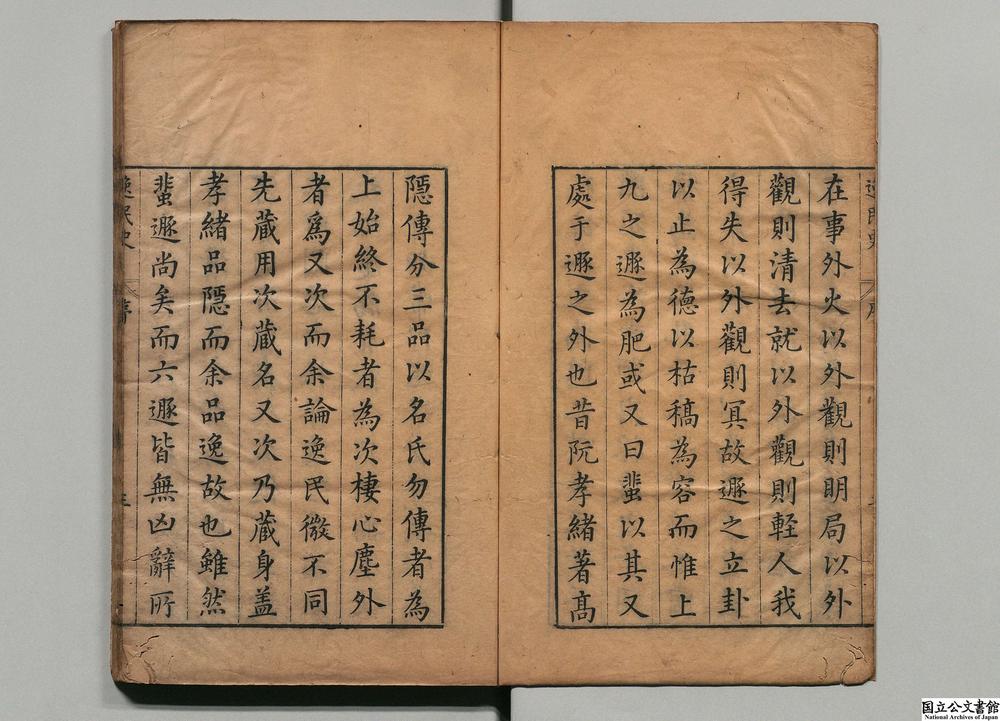 在事外火以外觀則明局以外
觀則清去就以外觀則軽人我
得失以外觀則冥故遯之立卦
以止為德以枯稿為容而惟上
九之遯為肥或又曰蜚以其又
處于遯之外也昔阮孝緒著髙
隱傳分三品以名氏勿傳者為
上始終不耗者為次棲心塵外
者爲又次而余論逸民微不同
先蔵用次蔵名又次乃蔵身盖
孝緒品隱而余品逸故也雖然
蜚遯尚矣而六遯皆無凶辭所
逸民史
序
国立公文書館
National Archives of Japan